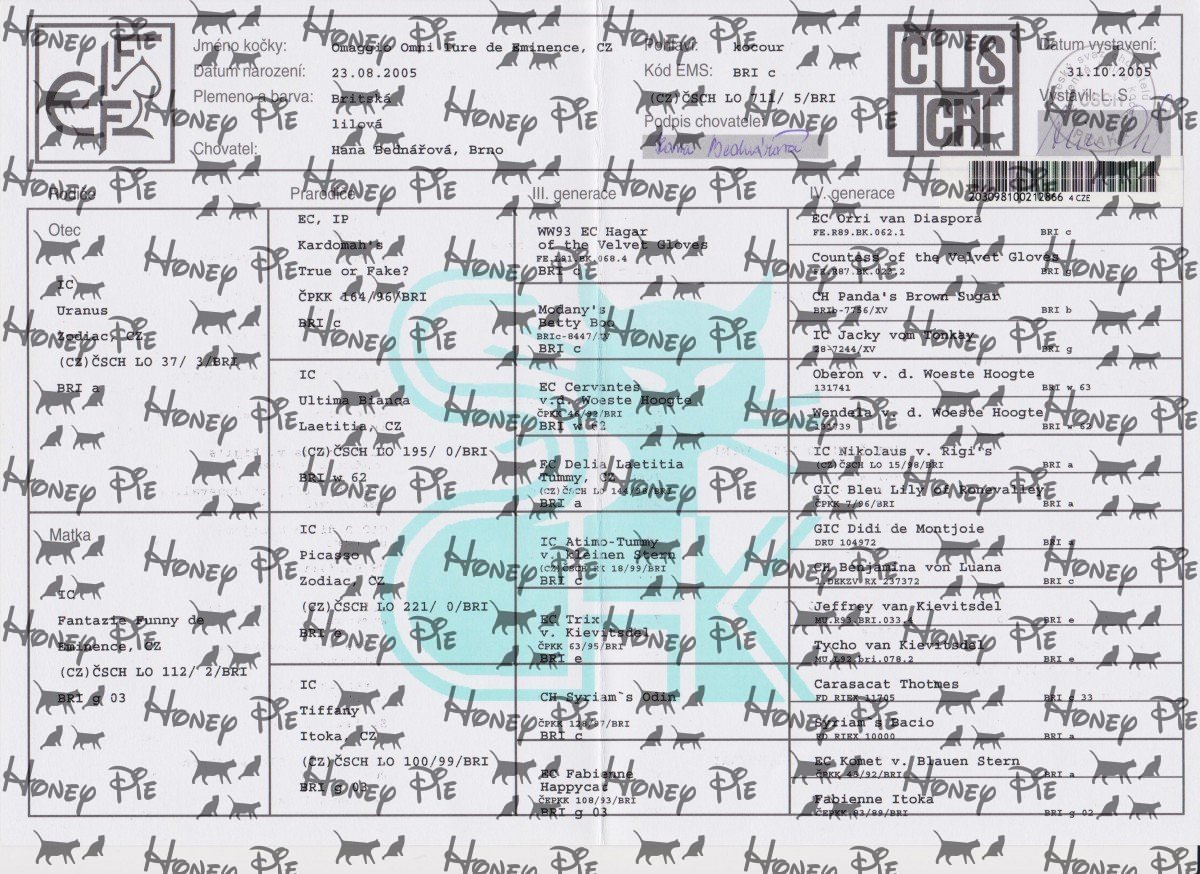 Jméno kočky: Omaggio Omni Iure de Eminence, CZ
Datum narození: 23.08.2005
Plemeno a barva: Britská
lilová
Chovatel: Hana Bednářová, Brno
Pohlaví: kocour
Kód EMS: BRI c
(CZ)ČSCH LO 711/ 5/BRI
Podpis chovatele:
Hana Bednářová
ČSCH
Datum vystavení:
31.10.2005
Vystavil: L. S.
203098100212866 4 CZE
Rodiče
Prarodiče
III. generace
IV. generace
Otec
IC
Uranus
Zodiac, CZ
(CZ)ČSCH LO 37/ 3/BRI
BRI a
Matka
IC
Fantazie Funny de
Eminence, CZ
(CZ)ČSCH LO 112/ 2/BRI
BRI g 03
EC, IP
Kardomah's
True or Fake?
ČPKK 164/96/BRI
BRI c
IC
Ultima Bianca
Laetitia, CZ
(CZ)ČSCH LO 195/ 0/BRI
BRI w 62
IC
Picasso
Zodiac, CZ
(CZ)ČSCH LO 221/ 0/BRI
BRI e
IC
Tiffany
Itoka, CZ
(CZ)ČSCH LO 100/99/BRI
BRI g 03
WW93 EC Hagar
of the Velvet Gloves
FE.L91.BK.068.4
BRI c
Modany's
Betty Boo
BRIc-8447/IV
BRI c
EC Cervantes
v.d. Woeste Hoogte
ČPKK 46/92/BRI
BRI w 62
EC Delia Laetitia
Tummy, CZ
(CZ)ČSCH LO 144/98/BRI
BRI a
IC Atimo-Tummy
v. kleinen Stern
(CZ)ČSCH RX 18/99/BRI
BRI c
EC Trix
v. Kievitsdel
ČPKK 63/95/BRI
BRI e
CH Syriam`s Odin
ČPKK 128/97/BRI
BRI c
EC Fabienne
Happycat
ČPKK 108/93/BRI
BRI g 03
EC Orri van Diaspora
FE.R89.BK.062.1 BRI c
Countess of the Velvet Gloves
FE.R87.BK.022.2 BRI g
CH Panda's Brown Sugar
BRIb-7756/XV BRI b
IC Jacky vom Tonkay
28-7244/XV BRI g
Oberon v. d. Woeste Hoogte
131741 BRI w 63
Wendela v. d. Woeste Hoogte
BRI w 62
IC Nikolaus v. Rigi's
(CZ)ČSCH LO 15/98/BRI BRI a
GIC Bleu Lily of Ronevalley
ČPKK 7/96/BRI BRI a
GIC Didi de Montjoie
DRU 104972 BRI a
CH Benjamina von Luana
1.DEKZV RX 237372 BRI c
Jeffrey van Kievitsdel
MU.R93.BRI.033.4 BRI e
Tycho van Kievitsdel
MU.L92.bri.078.2 BRI e
Carasacat Thotmes
FD RIEX 11705 BRI c 33
Syriam`s Bacio
FD RIEX 10000 BRI a
EC Komet v. Blauen Stern
ČPKK 45/92/BRI BRI a
Fabienne Itoka
ČEPKK 93/89/BRI BRI g 02
Honey Pie